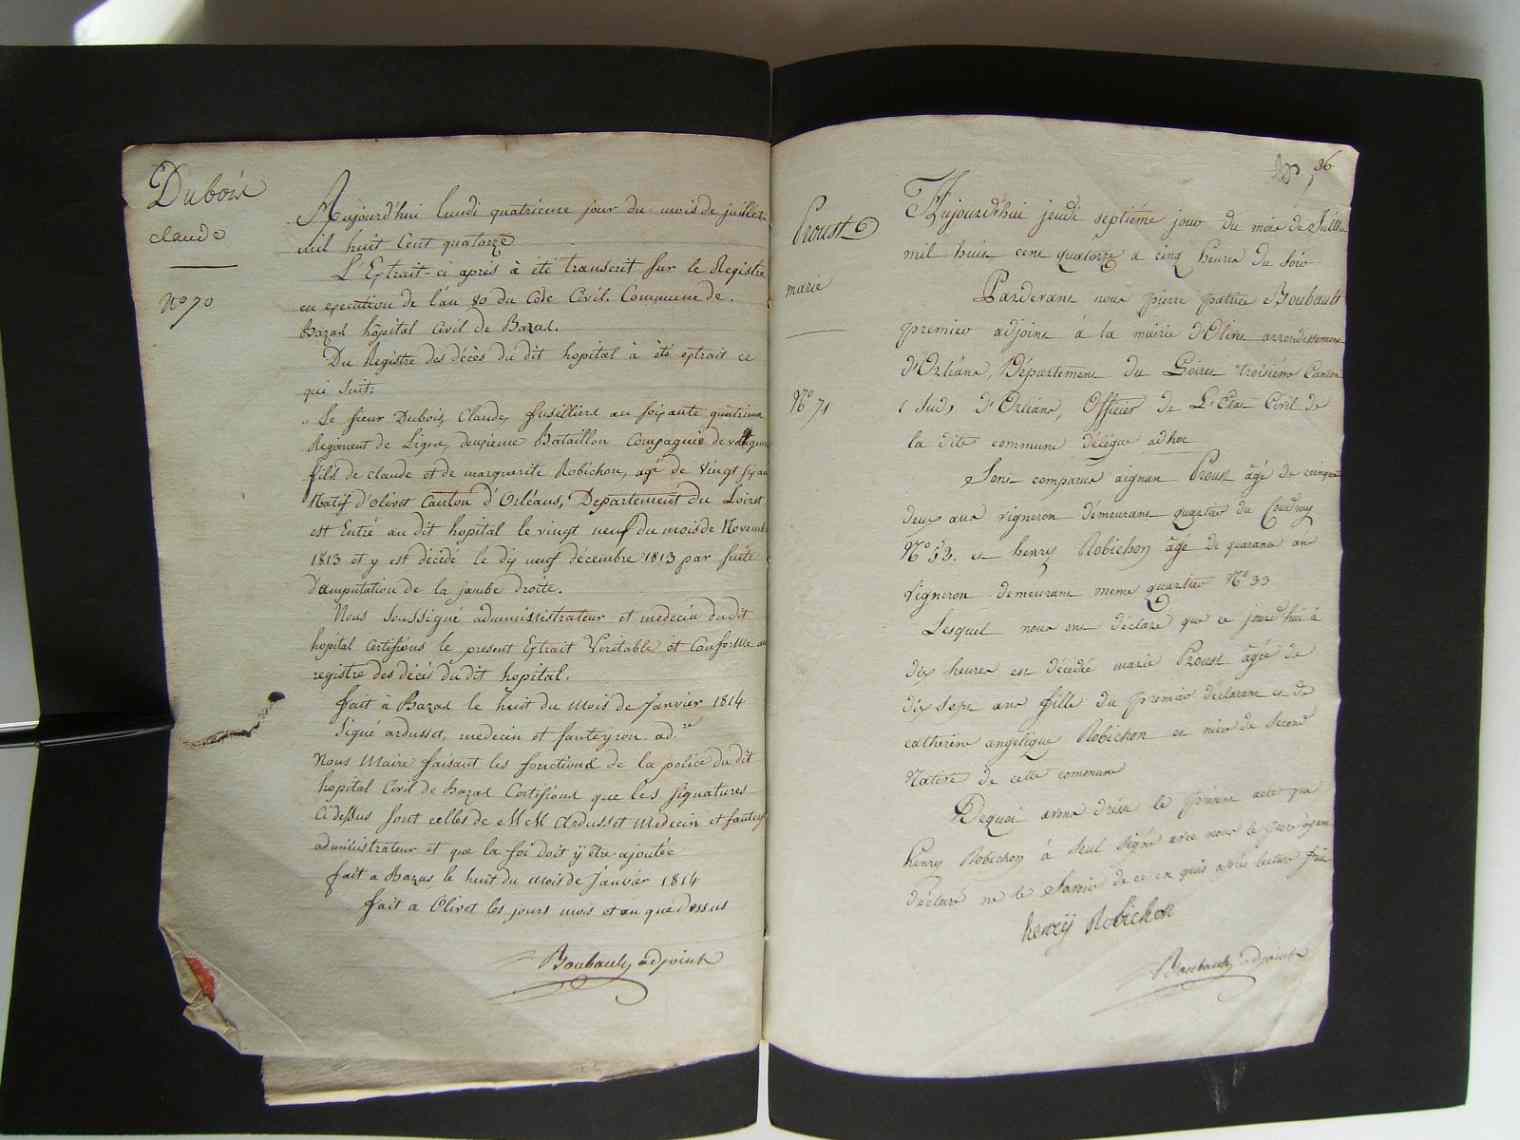 Dubois
claude
No 70
Aujourd'hui lundi quatrieme jour du mois de juillet
mil huit Cent quatorze
L'Extrait ci après à été transcrit sur le Registre
en execution de l'an 80 du Code Civil. Commune de
Bazas hôpital Civil de Bazas.
Du Registre des décès du dit hopital à été extrait ce
qui suit.
Le sieur Dubois Claude, fusillière au soixante quatrieme
Regiment de Ligne, deuxieme Bataillon Compagnie de
fils de claude et de marguerite Robichon, agé de vingt six ans
Natif d'olivet Canton d'Orléans, Departement du Loiret
est Entré au dit hopital le vingt neuf du mois de Novembre
1813 et y est décédé le dix neuf décembre 1813 par suite
d'amputation de la jambe droite.
Nous soussigné administrateur et medecin du dit
hopital certifions le present Extrait Véritable et Conforme au
registre des décès du dit hopital.
fait à Bazas le huit du mois de Janvier 1814
Signé ardusset, medecin et fauteyron ad.re
Nous Maire faisant les fonctions de la police du dit
hopital Civil de Bazas Certifions que les signatures
Ci dessus sont celles de MM Ardusset Medecin et fautey
administrateur et que la foi doit ÿ être ajoutée
fait a Bazas le huit du mois de Janvier 1814
fait a Olivet les jours mois et an que dessus
Boubault adjoint
36
Proust
marie
No 71
Aujourd'hui jeudi septiéme jour du mois de Juillet
mil huit cent quatorze a cinq heures du soir
Pardevant nous pierre patrice Boubault
premier adjoint à la mairie d'Olivet arrondissement
d'Orléans, Département du Loiret troisième Canton
(Sud) d'Orléans, Officier de L'Etat Civil de
la dite commune délégué ad hoc
Sont comparus aignan Proust âgé de cinquante
deux ans vigneron demeurant quartier du Coudray
No 53. et henry Robichon âgé de quarante ans
vigneron demeurant meme quartier No 33
Lesquels nous ont déclaré que ce jourd'hui à
dix heures est décédée marie Proust âgée de
dix sept ans fille du premier déclarant et de
catherine angelique Robichon et niece du second
Native de cette commune
Dequoi avons dressé le présent acte que
henry Robichon à seul signé avec nous le
déclaré ne le savoir de ce enquis après lecture faite
henrÿ Robichon
Boubault adjoint